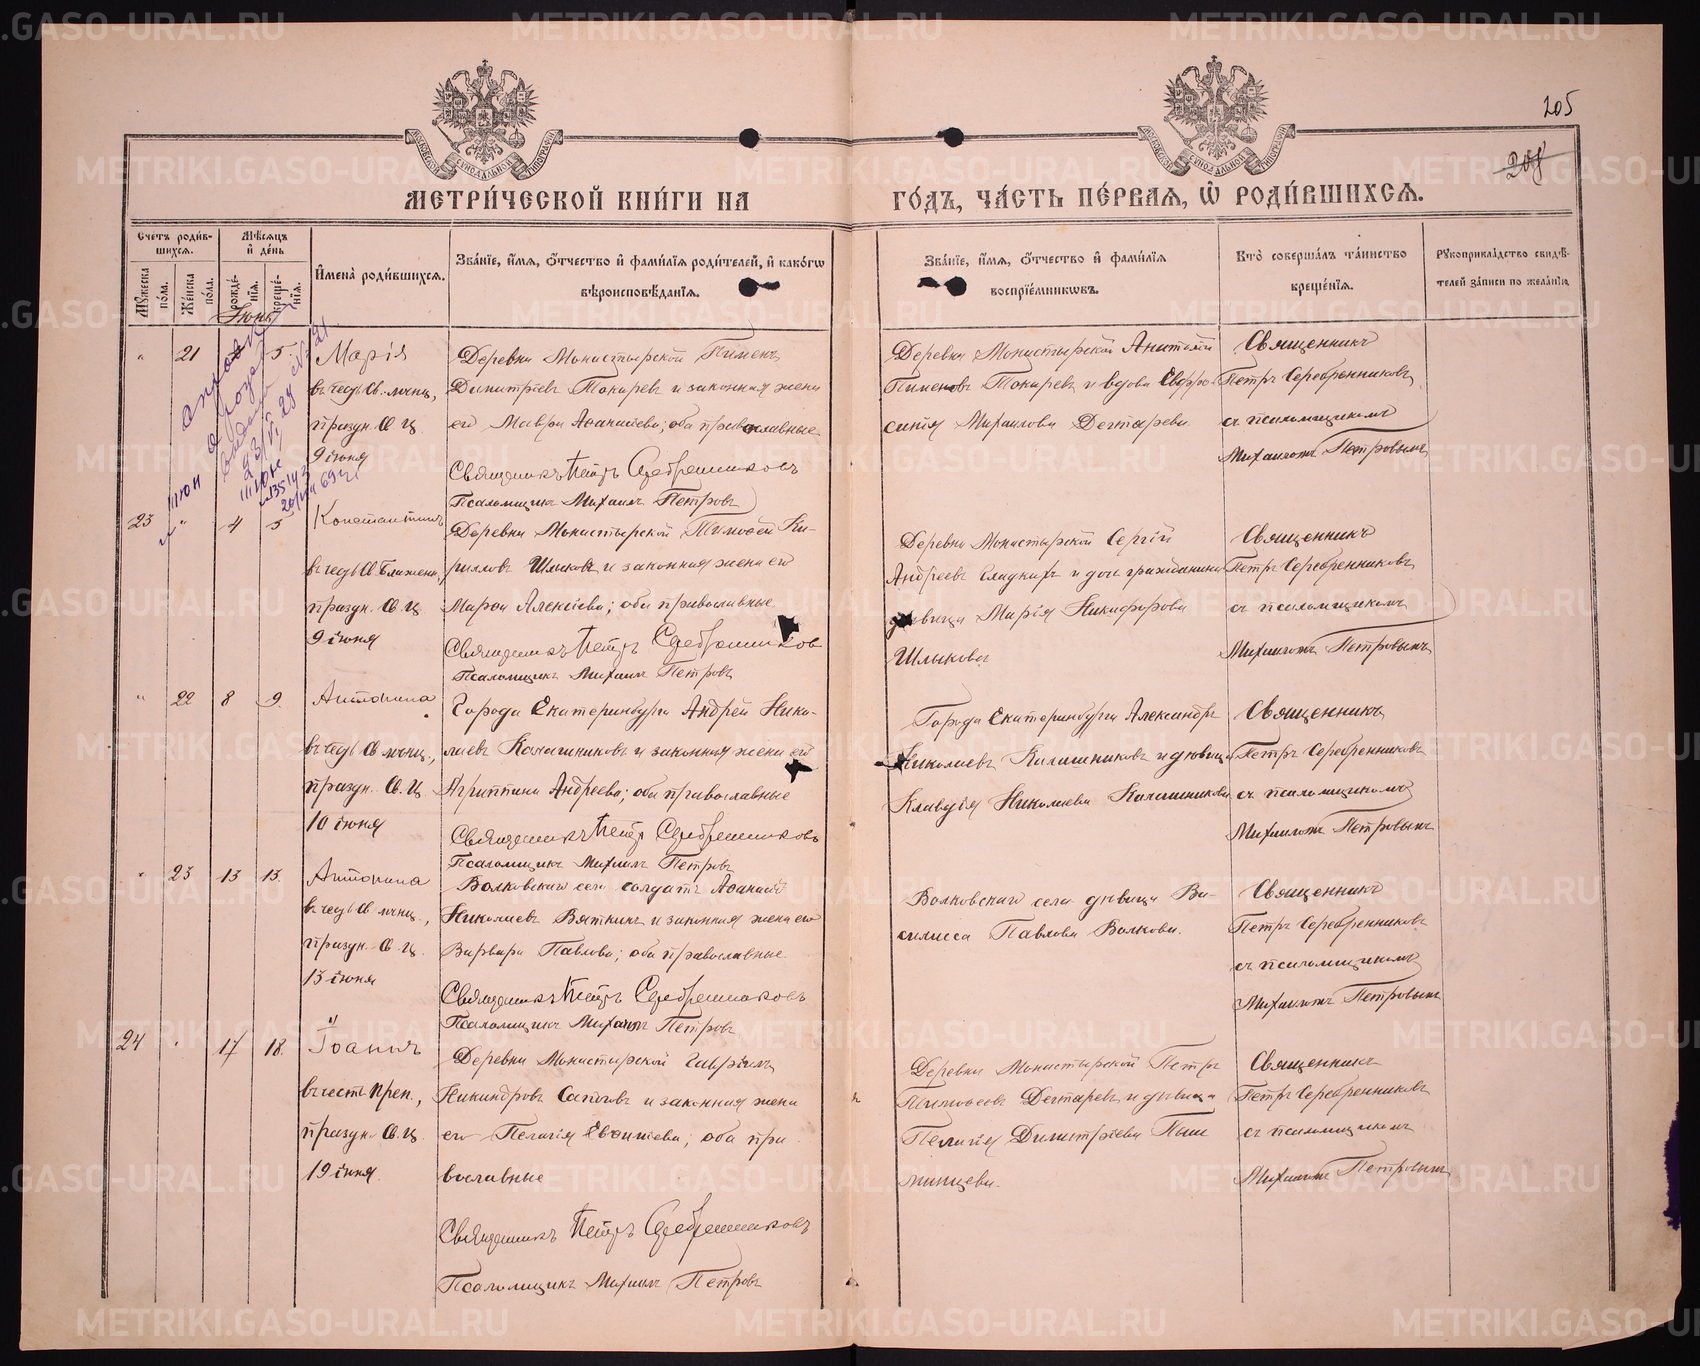 205
208
МЕТРИЧЕСКОЙ КНИГИ НА ГОДЪ, ЧАСТЬ ПЕРВАЯ, Ѡ РОДИВШИХСЯ.
Счетъ родившихся.
Мужеска пола.
Женска пола.
Мѣсяцъ и день
рожденія.
крещенія.
Имена родившихся.
Званіе, имя, отчество и фамилія родителей, и какого вѣроисповѣданія.
Званіе, имя, отчество и фамилія воспріемниковъ.
Кто совершалъ таинство крещенія.
Рукоприкладство свидѣтелей записи по желанію.
Іюнь
21
5
Марія
въ честь Св. мчниц.,
праздн. Св. Ц.
9 іюня
Деревни Монастырской Пименъ
Димитріевъ Токаревъ и законная жена
его Мавра Аѳанасіева; оба православные
Священникъ Петръ Серебренниковъ
Псаломщикъ Михаилъ Петровъ
Деревни Монастырской Анатолій
Пименовъ Токаревъ и вдова Евфро-
синія Михаилова Дегтарева
Священникъ
Петръ Серебренниковъ
съ псаломщикомъ
Михаиломъ Петровымъ
23
4
5
Константинъ
праздн. Св. Ц.
9 іюня
Деревни Монастырской Тимоѳей Ки-
рилловъ Шлыковъ и законная жена его
Марѳа Алексіева; оба православные
Священникъ Петръ Серебренниковъ
Псаломщикъ Михаилъ Петровъ
Деревни Монастырской Сергій
Андреевъ Гладкихъ и дочь гражданина
дѣвица Марія Никифорова
Шлыкова
Священникъ
Петръ Серебренниковъ
съ псаломщикомъ
Михаиломъ Петровымъ
22
8
9
Антонина
въ честь Св. мчниц.,
праздн. Св. Ц.
10 іюня
Города Екатеринбурга Андрей Нико-
лаевъ Калашниковъ и законная жена его
Агриппина Андреева; оба православные
Священникъ Петръ Серебренниковъ
Псаломщикъ Михаилъ Петровъ
Города Екатеринбурга Александръ
Николаевъ Калашниковъ и дѣвица
Клавдія Николаева Калашникова
Священникъ
Петръ Серебренниковъ
съ псаломщикомъ
Михаиломъ Петровымъ
23
13
13
Антонина
въ честь Св. мчниц.,
праздн. Св. Ц.
13 іюня
Волковскаго села солдатъ Аѳанасій
Николаевъ Вяткинъ и законная жена его
Варвара Павлова; оба православные
Священникъ Петръ Серебренниковъ
Псаломщикъ Михаилъ Петровъ
Волковскаго села дѣвица Ва-
силисса Павлова Волкова.
Священникъ
Петръ Серебренниковъ
съ псаломщикомъ
Михаиломъ Петровымъ
24
17
18
Іоаннъ
въ честь Преп.,
праздн. Св. Ц.
19 іюня
Деревни Монастырской Гавріилъ
Никандровъ и законная жена
его Пелагія Евѳиміева; оба пра-
вославные
Священникъ Петръ Серебренниковъ
Псаломщикъ Михаилъ Петровъ
Деревни Монастырской Петръ
Тимоѳеевъ Дегтаревъ и дѣвица
Пелагія Димитріева Пыш-
минцева.
Священникъ
Петръ Серебренниковъ
съ псаломщикомъ
Михаиломъ Петровымъ
METRIKI.GASO-URAL.RU